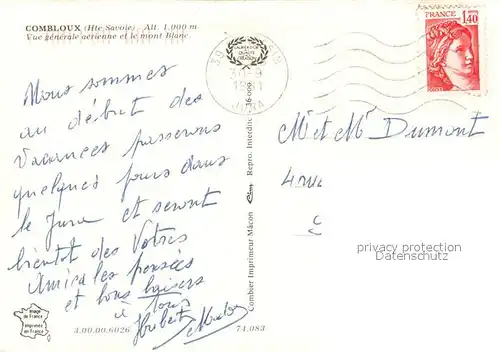 COMBLOUX (Hte Savoie) - Alt. 1.000 m
Vue générale aérienne et le mont Blanc.
Nous sommes
au début des
vacances passerons
quelques jours dans
le Jura et seront
bientôt des Votres
Amicales pensées
et bons baisers
à tous
Hubert
image
de France
Imprimée
en France
3.00.00.6026
74.083
Combier Imprimeur Mâcon
Repro. Interdite
30-9
1981
JURA
FRANCE
1,40
M et Me Dumont
4 rue
privacy protection
Datenschutz